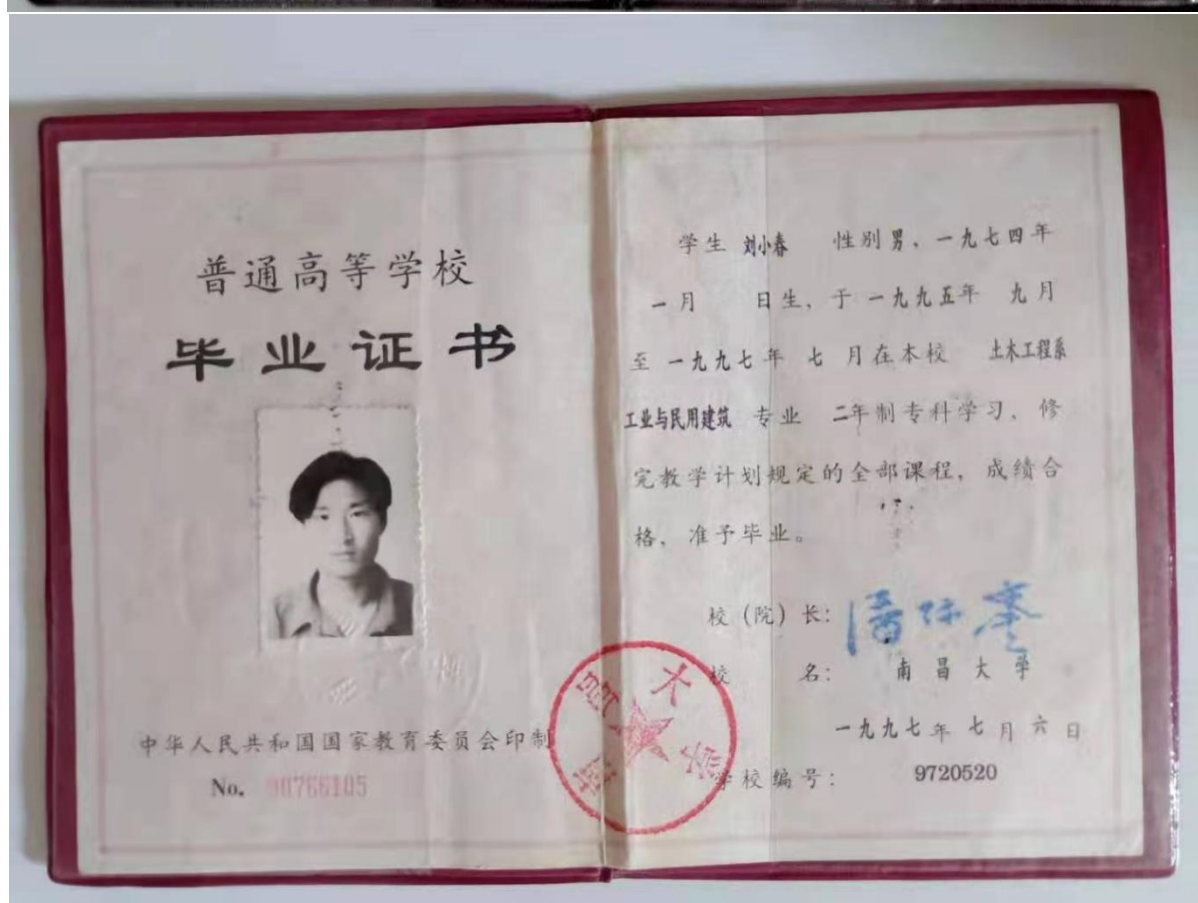 普通高等学校
毕业证书
中华人民共和国国家教育委员会印制
No. 00766105
学生 刘小春 性别男、一九七四年
一月 日生, 于 一九九五年 九月
至 一九九七年 七 月在本校 土木工程系
工业与民用建筑 专业 二年制专科学习, 修
完教学计划规定的全部课程, 成绩合
格, 准予毕业。
校 (院) 长: 潘际銮
校 名: 南昌大学
一九九七年七月六日
学校编号: 9720520
南昌大学